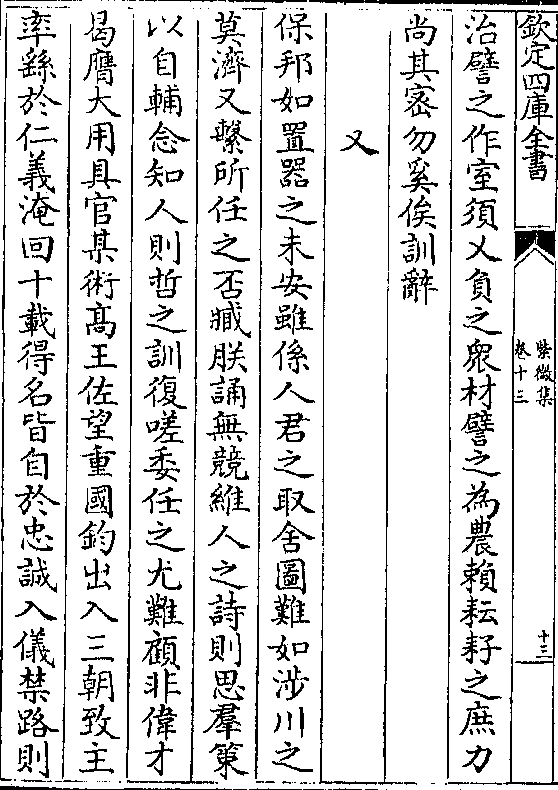 欽定四庫全書
紫微集
卷十三
十三
治譬之作室須乂負之衆材譬之為農賴耘耔之庶力
尚其宻勿奚俟訓辭
又
保邦如置器之未安雖係人君之取舍圖難如涉川之
莫濟又繫所任之否臧朕誦無競維人之詩則思羣策
以自輔念知人則哲之訓復嗟委任之尤難顧非偉才
曷膺大用具官某術髙王佐望重國鈞出入三朝致主
率繇於仁義淹回十載得名皆自於忠誠入儀禁路則